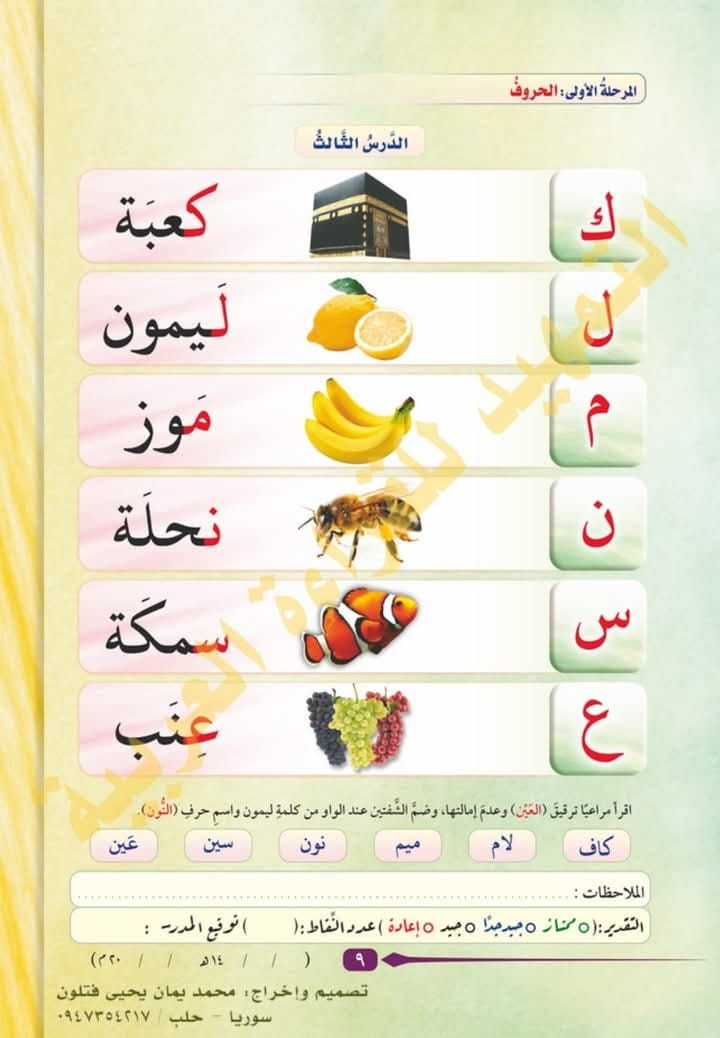 المرحلةُ الأولى: الحروفُ
الدَّرسُ الثَّالثُ
ك كعبَة
ل لَيمون
م مَوز
ن نحلَة
س سمكَة
ع عِنَب
اقرأ مراعيًا ترقيقَ (العَيْن) وعدمَ إمالتها، وضمَّ الشَّفتين عند الواو من كلمةِ ليمون واسمِ حرفِ (النُّون).
كاف لام ميم نون سين عَين
الملاحظات :
التقدير:( ○ ممتاز ○ جيد جدًا ○ جيد ○ إعادة ) عدد النِّقاط: ( ) توقيع المدرس :
٩ ( / / ١٤هـ / / ٢٠م)
تصميم وإخراج: محمد يمان يحيى فتلون
سوريا - حلب / ٠٩٤٧٣٥٤٢١٧
التمهيد للقراءة العربية